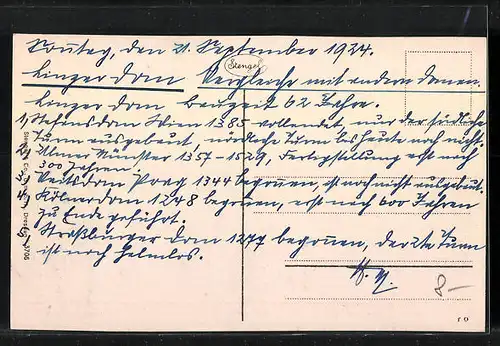 Sonntag, den 21. September 1924.
Stengel
Linzer Dom Vergleiche mit andern Domen.
Linzer Dom Bauzeit 62 Jahre.
1, Stefansdom Wien 1385 vollendet, nur der südliche
Turm ausgebaut, nördliche Turm bis heute noch nicht.
2, Ulmer Münster 1357-1529, Fertigstellung erst nach
300 Jahren.
3, Veitsdom Prag 1344 begonnen, ist noch nicht ausgebaut.
4, Kölnerdom 1248 begonnen, erst nach 600 Jahren
zu Ende geführt.
Straßburger Dom 1277 begonnen, der 2te Turm
ist noch helmlos.
8-